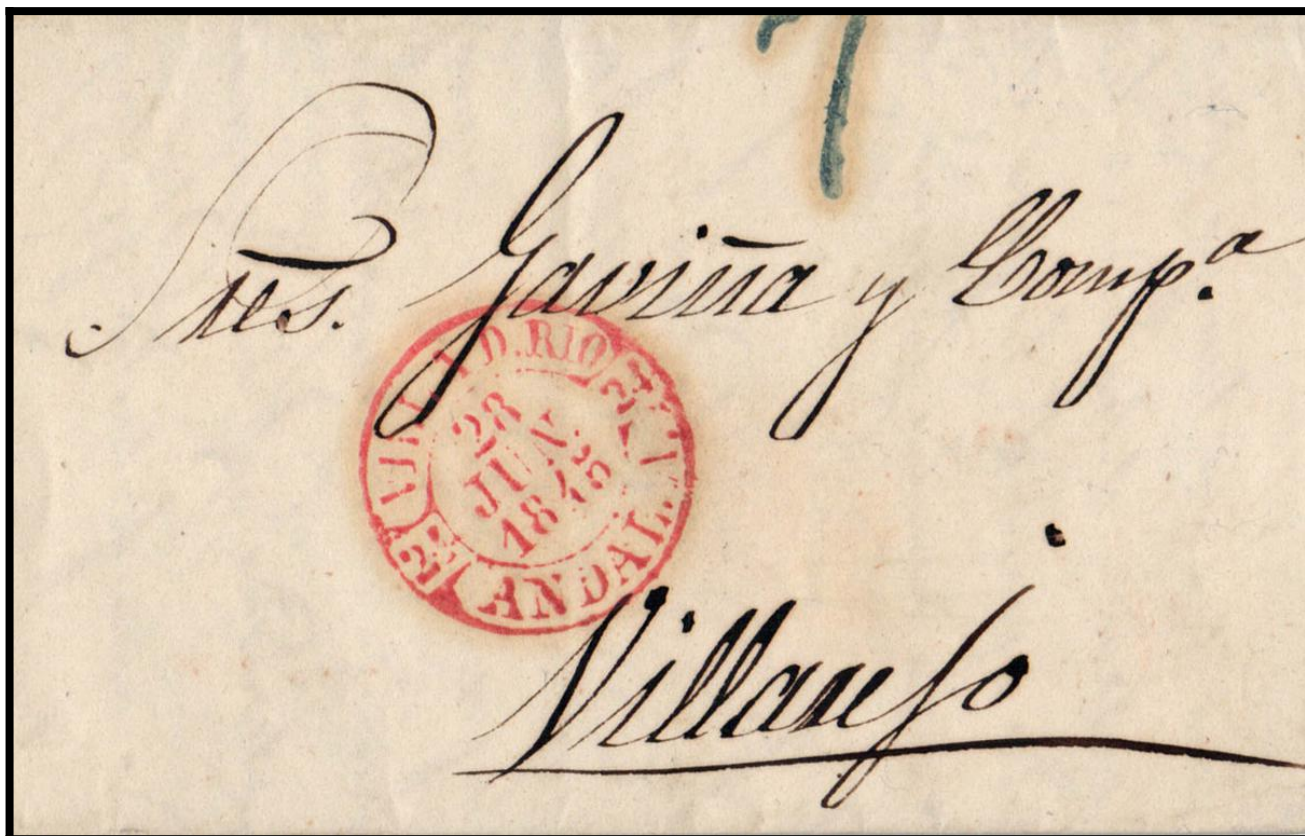 7
Sres. Gaviña y Comp.ª
D.RIO
28
JUN.
1845
ANDAL.
Villarejo